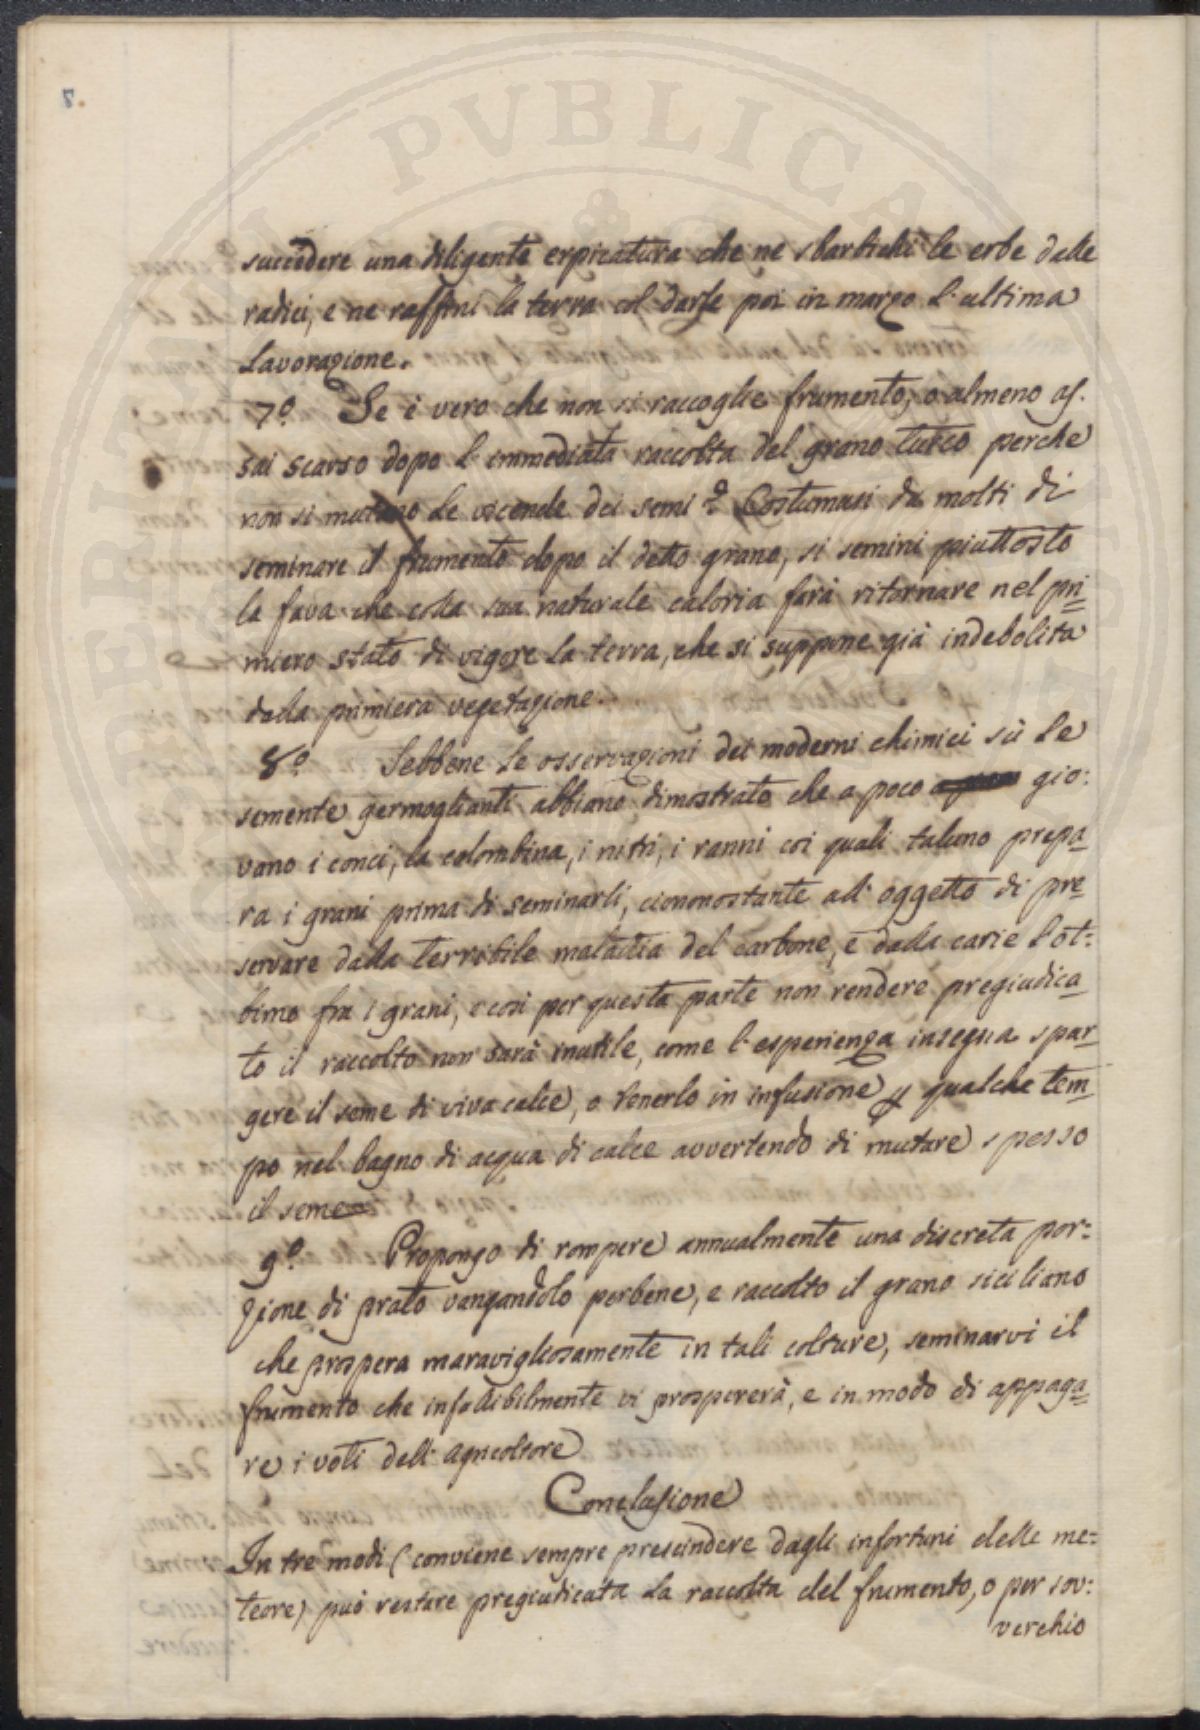 succedere una diligente erpicatura che ne sbarbichi le erbe dalle
radici, e ne raffini la terra col darle poi in marzo l'ultima
lavorazione.
7.º Se è vero che non si raccoglie frumento, o almeno as-
sai scarso dopo l'immediata raccolta del grano turco perche
non si mutano le vicende dei semi? Costumasi da molti di
seminare il frumento dopo il detto grano, si semini piuttosto
la fava che colla sua naturale caloria farà ritornare nel pri=
miero stato di vigore la terra, che si suppone già indebolita
dalla primiera vegetazione.
8.º Sebbene le osservazioni dei moderni chimici sù le
semente germoglianti abbiano dimostrato che a poco gio:
vano i conci, la colombina, i nitri, i ranni coi quali taluno prepa=
ra i grani prima di seminarli, ciononostante all'oggetto di pre=
servare dalla terribile malattia del carbone, e dalla carie l'ot:
timo fra i grani, e così per questa parte non rendere pregiudica=
to il raccolto non sarà inutile, come l'esperienza insegna spar=
gere il seme di viva calce, o tenerlo in infusione p qualche tem=
po nel bagno di acqua di calce avvertendo di mutare spesso
il seme
9.º Propongo di rompere annualmente una discreta por=
zione di prato vangandolo perbene, e raccolto il grano siciliano
che prospera maravigliosamente in tali colture, seminarvi il
frumento che infallibilmente vi prospererà, e in modo di appaga=
re i voti dell'agricoltore
Conclusione
In tre modi (conviene sempre prescindere dagli infortuni delle me=
teore) può restare pregiudicata la raccolta del frumento, o per sov:
verchio
PVBLICA